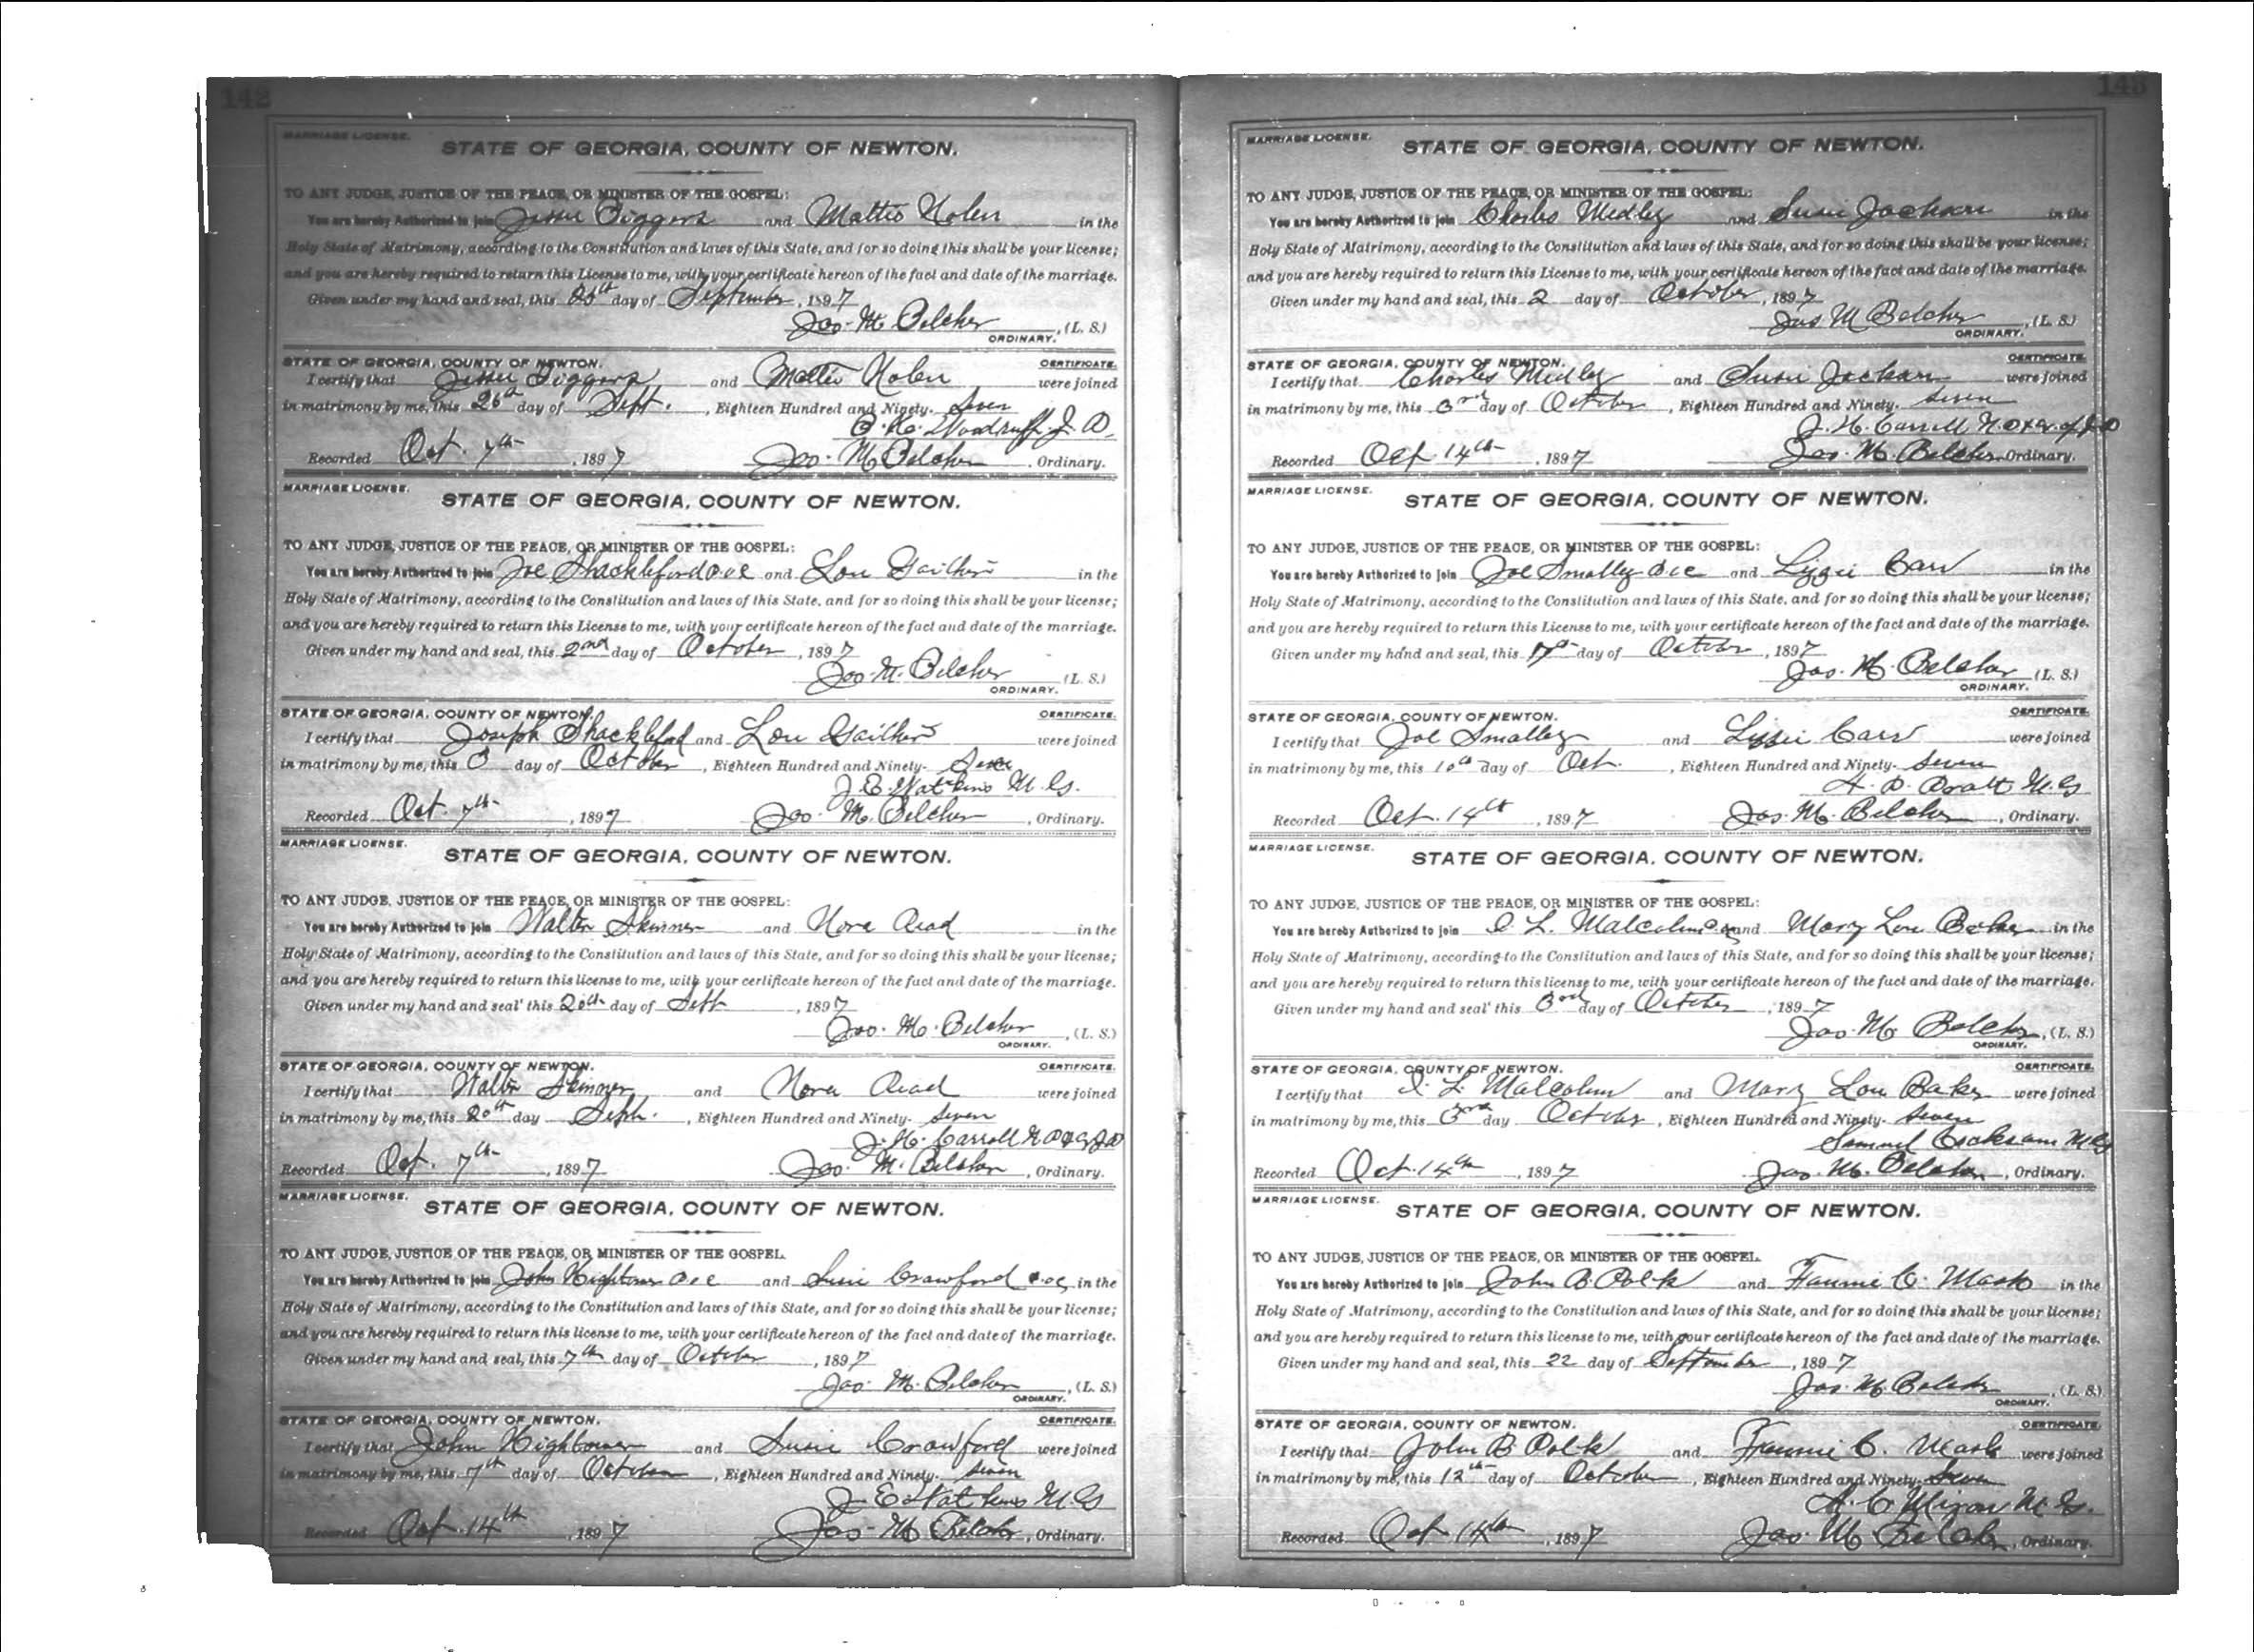 142
MARRIAGE LICENSE.
STATE OF GEORGIA, COUNTY OF NEWTON.
TO ANY JUDGE, JUSTICE OF THE PEACE, OR MINISTER OF THE GOSPEL:
You are hereby Authorized to join Jesse Biggers and Mattie Nolen in the
Holy State of Matrimony, according to the Constitution and laws of this State, and for so doing this shall be your license;
and you are hereby required to return this License to me, with your certificate hereon of the fact and date of the marriage.
Given under my hand and seal, this 25th day of September, 1897
Jas. M. Belcher, (L. S.)
ORDINARY.
STATE OF GEORGIA, COUNTY OF NEWTON. CERTIFICATE.
I certify that Jesse Biggers and Mattie Nolen were joined
in matrimony by me, this 26th day of Sept., Eighteen Hundred and Ninety-Seven
Woodruff J. P.
Recorded Oct. 7th, 1897 Jas. M. Belcher, Ordinary.
MARRIAGE LICENSE.
STATE OF GEORGIA, COUNTY OF NEWTON.
TO ANY JUDGE, JUSTICE OF THE PEACE, OR MINISTER OF THE GOSPEL:
You are hereby Authorized to join Joe Shackleford and Lou Gaither in the
Holy State of Matrimony, according to the Constitution and laws of this State, and for so doing this shall be your license;
and you are hereby required to return this License to me, with your certificate hereon of the fact and date of the marriage.
Given under my hand and seal, this 2nd day of October, 1897
Jas. M. Belcher (L. S.)
ORDINARY.
STATE OF GEORGIA, COUNTY OF NEWTON. CERTIFICATE.
I certify that Joseph Shackleford and Lou Gaither were joined
in matrimony by me, this 3 day of October, Eighteen Hundred and Ninety-Seven
J. E. Watkins M. G.
Recorded Oct. 7th, 1897 Jas. M. Belcher, Ordinary.
MARRIAGE LICENSE.
STATE OF GEORGIA, COUNTY OF NEWTON.
TO ANY JUDGE, JUSTICE OF THE PEACE, OR MINISTER OF THE GOSPEL:
You are hereby Authorized to join Walter Skinner and Nora Read in the
Holy State of Matrimony, according to the Constitution and laws of this State, and for so doing this shall be your license;
and you are hereby required to return this license to me, with your certificate hereon of the fact and date of the marriage.
Given under my hand and seal' this 20th day of Sept, 1897
Jas. M. Belcher, (L. S.)
ORDINARY.
STATE OF GEORGIA, COUNTY OF NEWTON. CERTIFICATE.
I certify that Walter Skinner and Nora Read were joined
in matrimony by me, this 20th day Sept., Eighteen Hundred and Ninety-Seven
J. H. Carroll
Recorded Oct. 7th, 1897 Jas. M. Belcher, Ordinary.
MARRIAGE LICENSE.
STATE OF GEORGIA, COUNTY OF NEWTON.
TO ANY JUDGE, JUSTICE OF THE PEACE, OR MINISTER OF THE GOSPEL.
You are hereby Authorized to join John Hightower and Susie Crawford in the
Holy State of Matrimony, according to the Constitution and laws of this State, and for so doing this shall be your license;
and you are hereby required to return this license to me, with your certificate hereon of the fact and date of the marriage.
Given under my hand and seal, this 7th day of October, 1897
Jas. M. Belcher, (L. S.)
ORDINARY.
STATE OF GEORGIA, COUNTY OF NEWTON. CERTIFICATE.
I certify that John Hightower and Susie Crawford were joined
in matrimony by me, this 7th day of October, Eighteen Hundred and Ninety-Seven
J. E. Watkins M. G.
Recorded Oct. 14th, 1897 Jas. M. Belcher, Ordinary.
143
MARRIAGE LICENSE.
STATE OF GEORGIA, COUNTY OF NEWTON.
TO ANY JUDGE, JUSTICE OF THE PEACE, OR MINISTER OF THE GOSPEL:
You are hereby Authorized to join Charles Medley and Susie Jackson in the
Holy State of Matrimony, according to the Constitution and laws of this State, and for so doing this shall be your license;
and you are hereby required to return this License to me, with your certificate hereon of the fact and date of the marriage.
Given under my hand and seal, this 2 day of October, 1897
Jas M Belcher, (L. S.)
ORDINARY.
STATE OF GEORGIA, COUNTY OF NEWTON. CERTIFICATE.
I certify that Charles Medley and Susie Jackson were joined
in matrimony by me, this 3rd day of October, Eighteen Hundred and Ninety-Seven
J. H. Carroll
Recorded Oct. 14th, 1897 Jas. M. Belcher, Ordinary.
MARRIAGE LICENSE.
STATE OF GEORGIA, COUNTY OF NEWTON.
TO ANY JUDGE, JUSTICE OF THE PEACE, OR MINISTER OF THE GOSPEL:
You are hereby Authorized to join Joe Smalley and Lizzie Carr in the
Holy State of Matrimony, according to the Constitution and laws of this State, and for so doing this shall be your license;
and you are hereby required to return this License to me, with your certificate hereon of the fact and date of the marriage.
Given under my hand and seal, this day of October, 1897
Jas. M. Belcher (L. S.)
ORDINARY.
STATE OF GEORGIA, COUNTY OF NEWTON. CERTIFICATE.
I certify that Joe Smalley and Lizzie Carr were joined
in matrimony by me, this 10th day of Oct., Eighteen Hundred and Ninety-Seven
Pratt M. G
Recorded Oct. 14th, 1897 Jas. M. Belcher, Ordinary.
MARRIAGE LICENSE.
STATE OF GEORGIA, COUNTY OF NEWTON.
TO ANY JUDGE, JUSTICE OF THE PEACE, OR MINISTER OF THE GOSPEL:
You are hereby Authorized to join L. Malcolm and Mary Lou Baker in the
Holy State of Matrimony, according to the Constitution and laws of this State, and for so doing this shall be your license;
and you are hereby required to return this license to me, with your certificate hereon of the fact and date of the marriage.
Given under my hand and seal' this 3rd day of October, 1897
Jas. M. Belcher, (L. S.)
ORDINARY.
STATE OF GEORGIA, COUNTY OF NEWTON. CERTIFICATE.
I certify that L. Malcolm and Mary Lou Baker were joined
in matrimony by me, this 3rd day October, Eighteen Hundred and Ninety-Seven
Samuel MG
Recorded Oct. 14th, 1897 Jas. M. Belcher, Ordinary.
MARRIAGE LICENSE.
STATE OF GEORGIA, COUNTY OF NEWTON.
TO ANY JUDGE, JUSTICE OF THE PEACE, OR MINISTER OF THE GOSPEL.
You are hereby Authorized to join John B. Polk and Fannie C. Mask in the
Holy State of Matrimony, according to the Constitution and laws of this State, and for so doing this shall be your license;
and you are hereby required to return this license to me, with your certificate hereon of the fact and date of the marriage.
Given under my hand and seal, this 22 day of September, 1897
Jas. M. Belcher, (L. S.)
ORDINARY.
STATE OF GEORGIA, COUNTY OF NEWTON. CERTIFICATE.
I certify that John B Polk and Fannie C. Mask were joined
in matrimony by me, this 12th day of October, Eighteen Hundred and Ninety-Seven
Mixon M. G.
Recorded Oct 14th, 1897 Jas. M. Belcher, Ordinary.